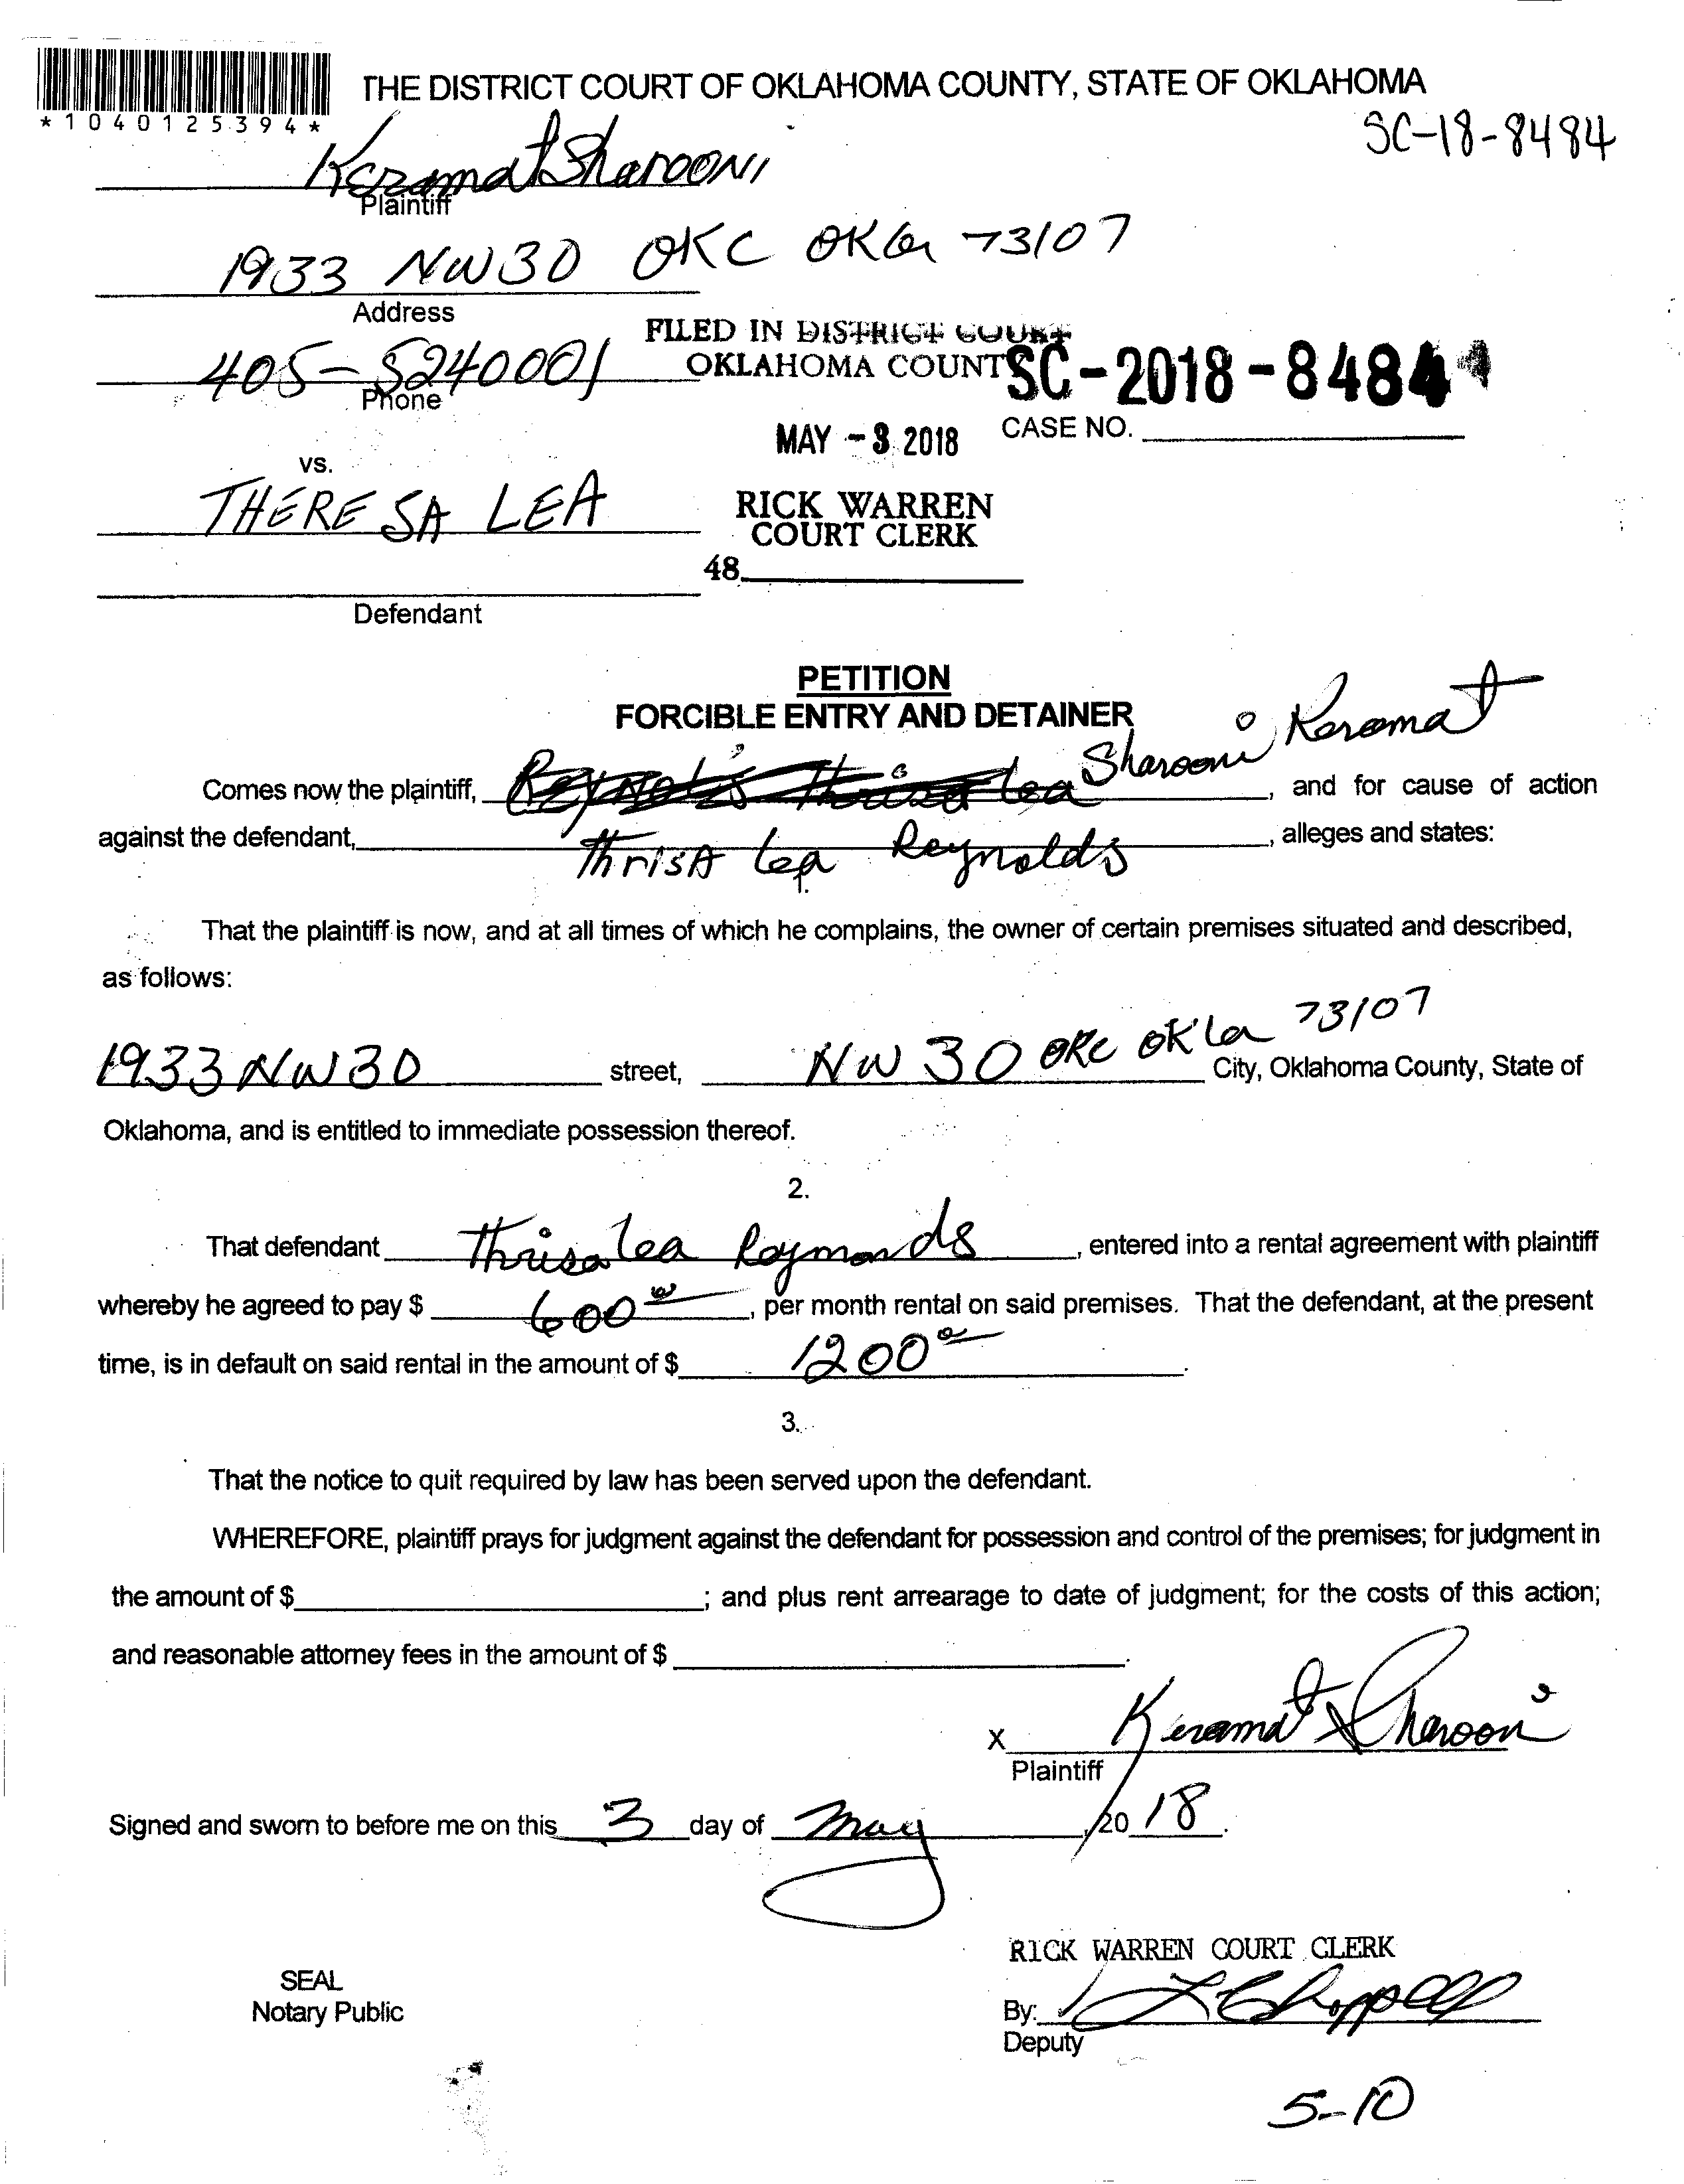 THE DISTRICT COURT OF OKLAHOMA COUNTY, STATE OF OKLAHOMA
*1040125394*
SC-18-8484
Keramat Sharooni
Plaintiff
1933 NW 30 OKC OKla 73107
Address
FILED IN DISTRICT COURT
OKLAHOMA COUNT
405-5240001
Phone
SC-2018-8484
CASE NO.
MAY -3 2018
vs.
THERESA LEA
RICK WARREN
COURT CLERK
48
Defendant
PETITION
FORCIBLE ENTRY AND DETAINER
Comes now the plaintiff, Sharooni Keramat, and for cause of action
against the defendant, ThrisA Lea Reynolds, alleges and states:
1.
That the plaintiff is now, and at all times of which he complains, the owner of certain premises situated and described,
as follows:
1933 NW 30 street, NW 30 OKC OKla 73107 City, Oklahoma County, State of
Oklahoma, and is entitled to immediate possession thereof.
2.
That defendant Thrisa Lea Raymonds, entered into a rental agreement with plaintiff
whereby he agreed to pay $ 600 00, per month rental on said premises. That the defendant, at the present
time, is in default on said rental in the amount of $ 1200 00.
3.
That the notice to quit required by law has been served upon the defendant.
WHEREFORE, plaintiff prays for judgment against the defendant for possession and control of the premises; for judgment in
the amount of $; and plus rent arrearage to date of judgment; for the costs of this action;
and reasonable attorney fees in the amount of $.
X Keramat Sharooni
Plaintiff
Signed and sworn to before me on this 3 day of May, 20 18.
RICK WARREN COURT CLERK
SEAL
Notary Public
By:
Deputy
5-10